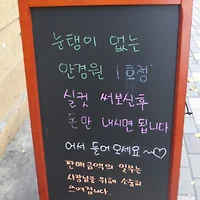 눈탱이 없는
안경원 1호점
실컷 써보신후
돈만 내시면 됩니다
어서 들어오세요~♡
판매금액의 일부는
사장님을 위해 소중히
쓰여집니다.